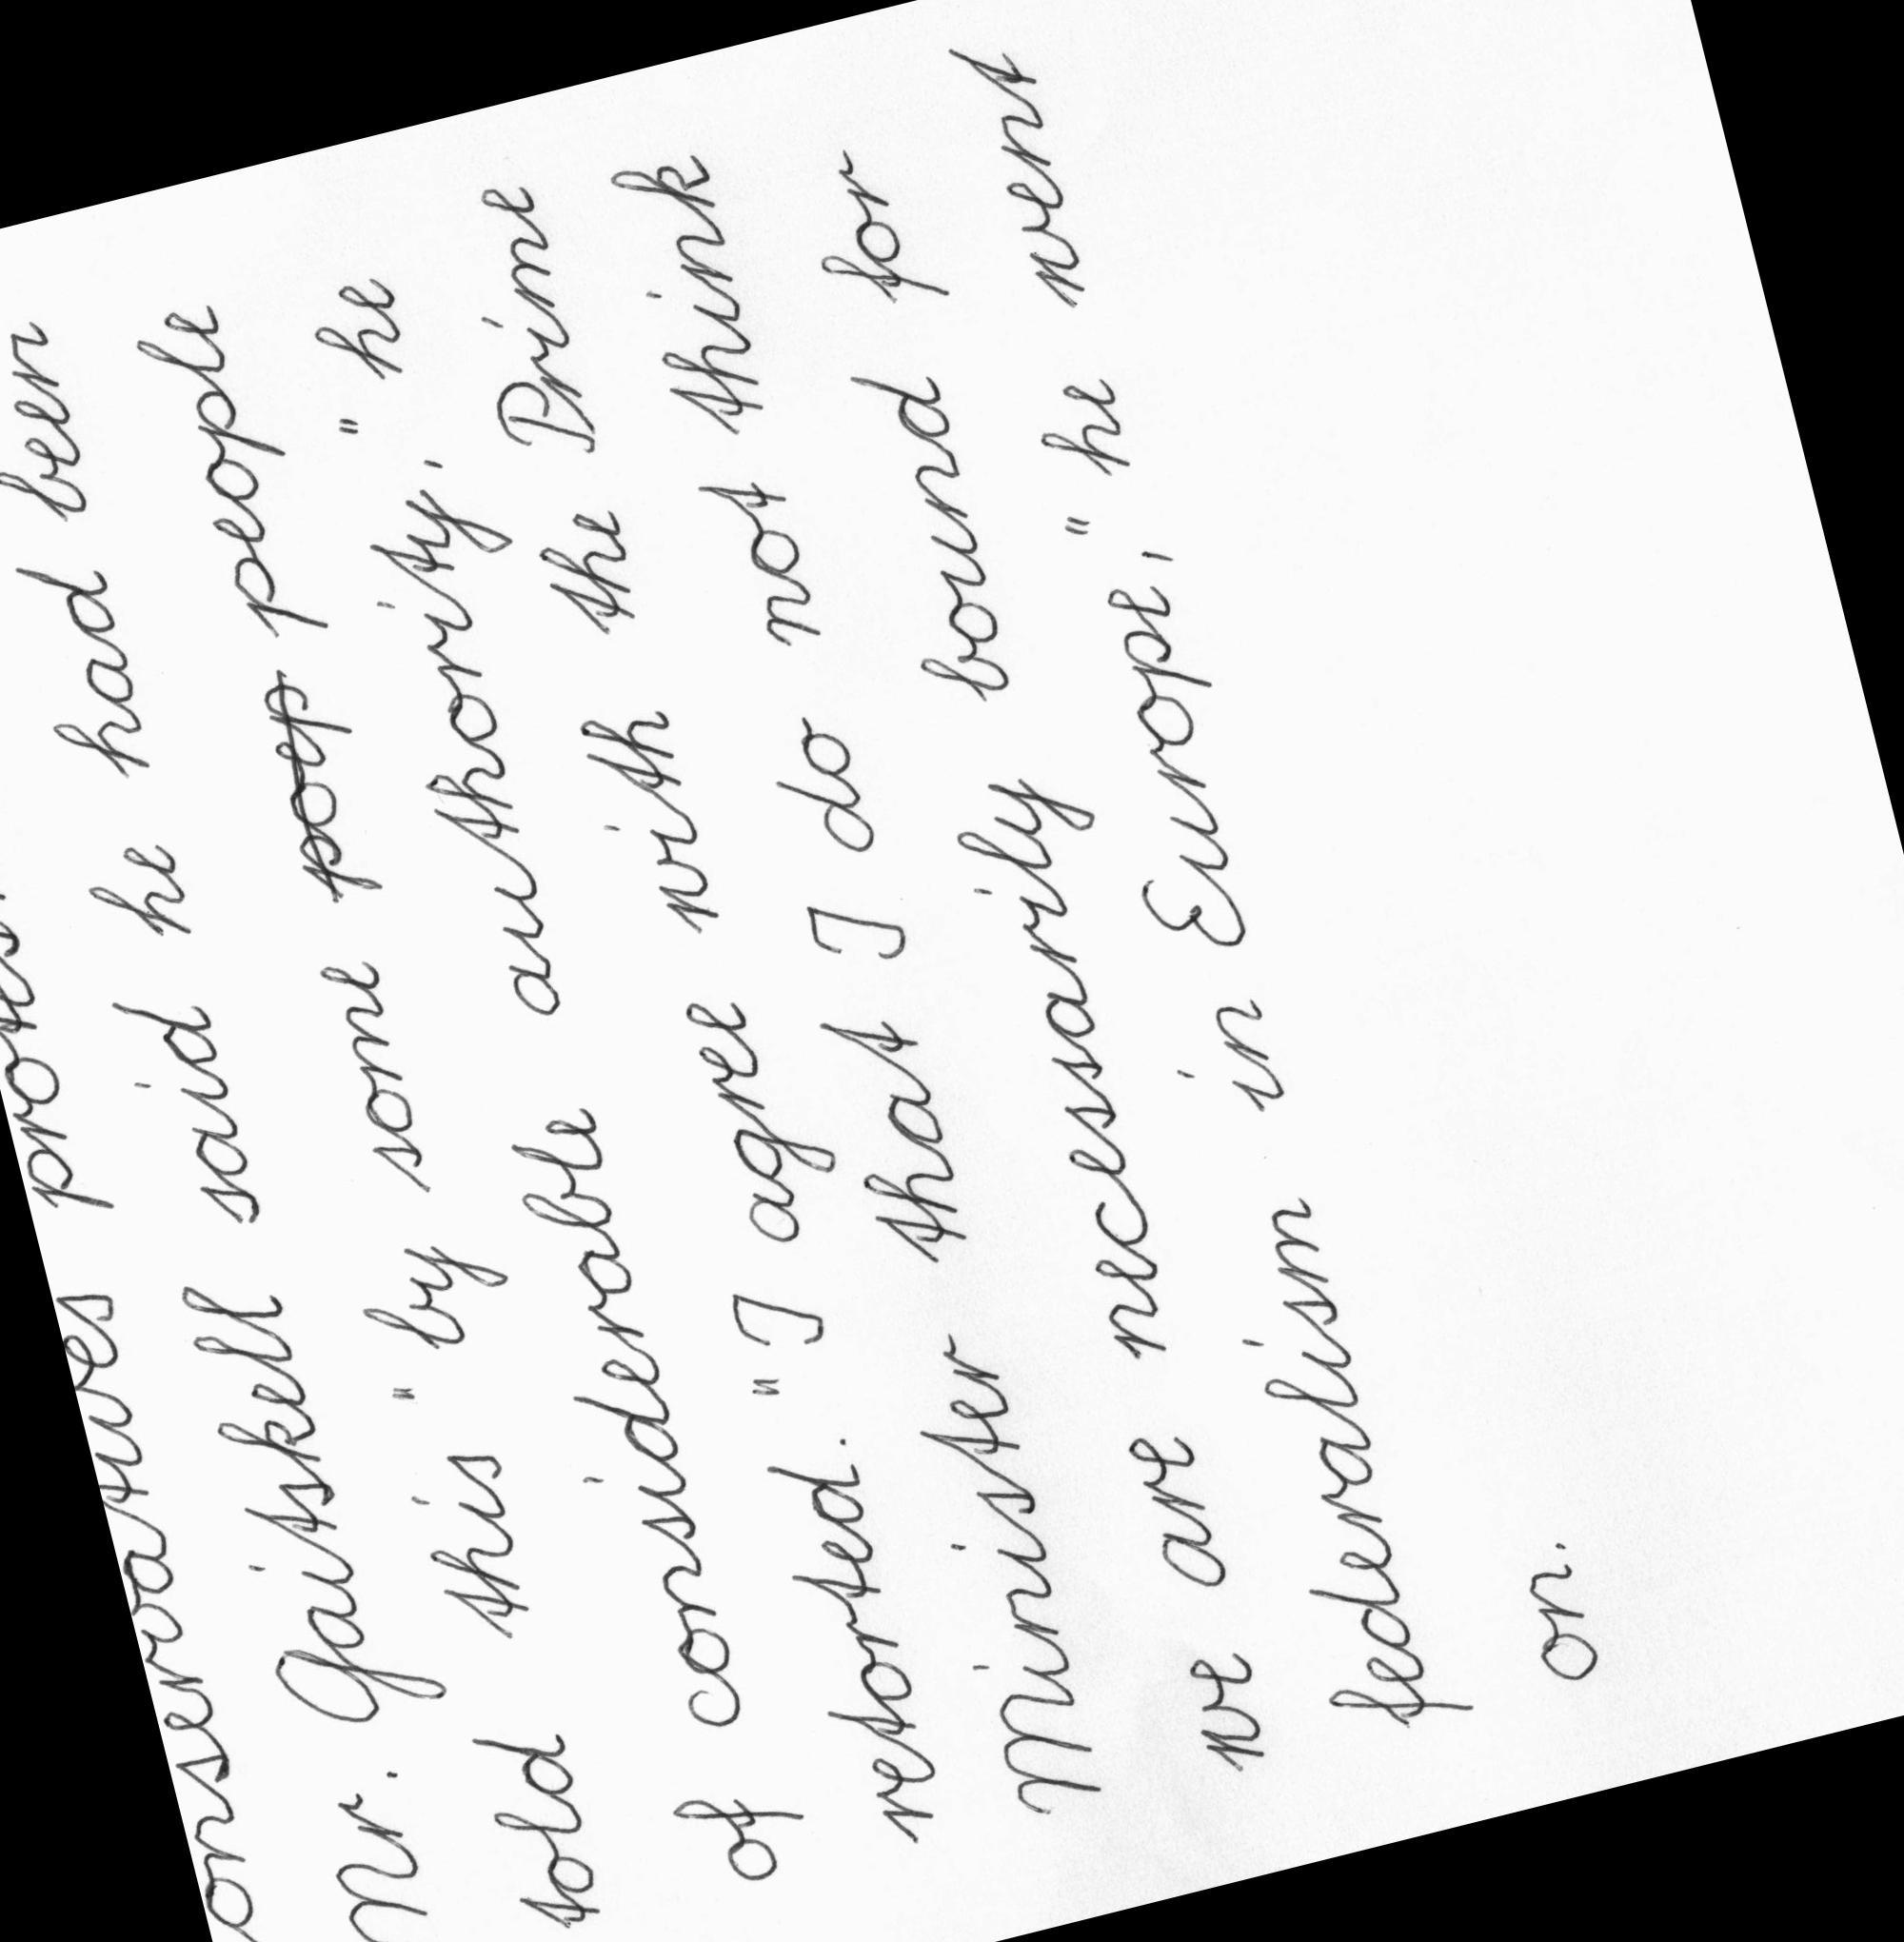 onservatives protest.
Mr. Gaitskell said he had been
told this " by some poop people
of considerable authority, " he
retorted. " I agree with the Prime
Minister that I do not think
we are necessarily bound for
federalism in Europe, " he went
on.